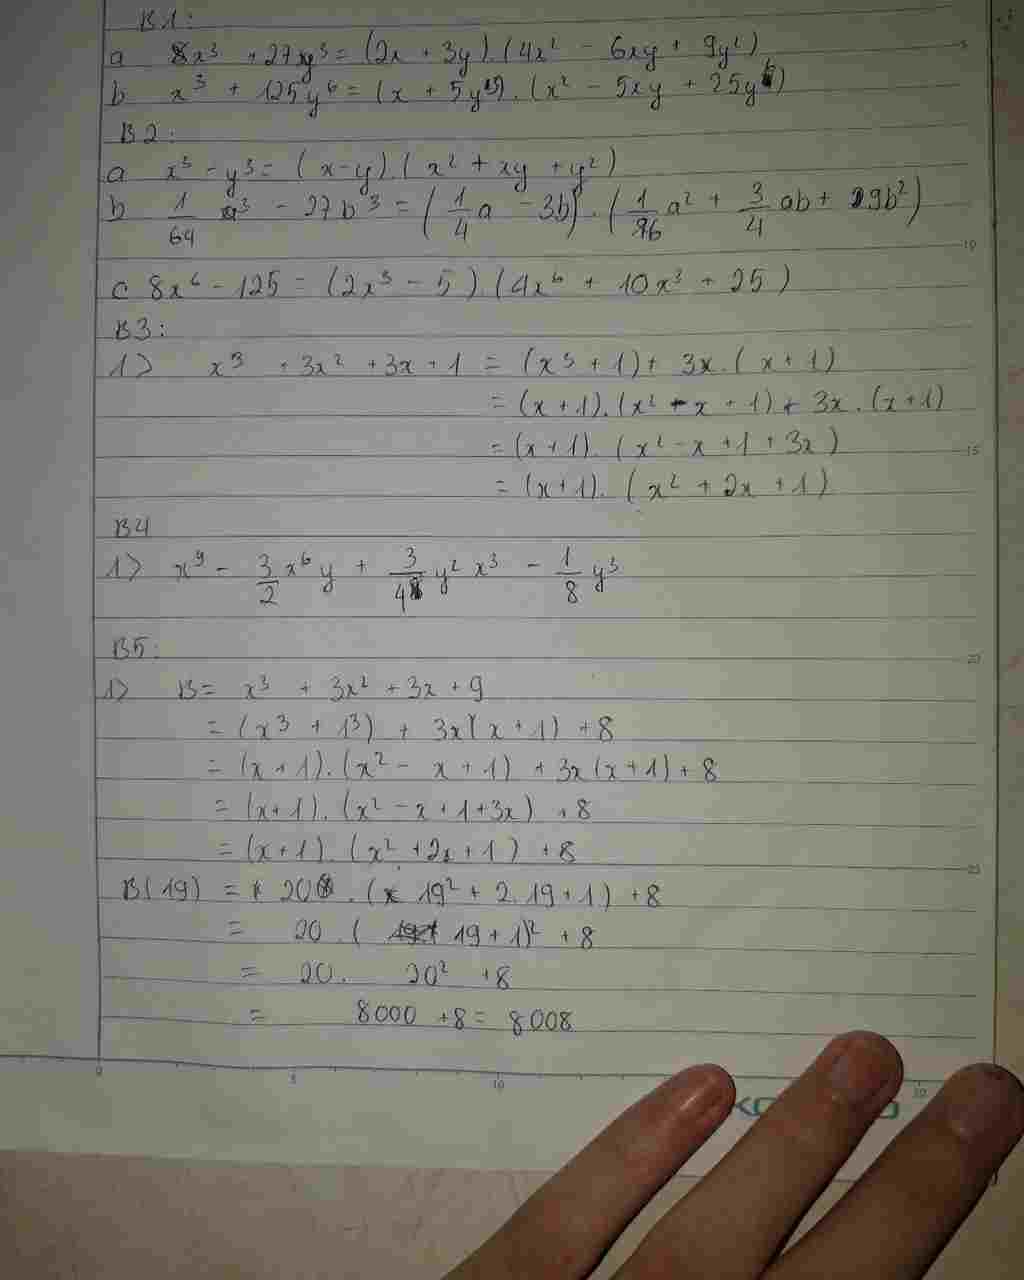 B1:
a 8x³ + 27y³ = (2x + 3y).(4x² - 6xy + 9y²)
b x³ + 125y⁶ = (x + 5y²).(x² - 5xy + 25y⁴)
B2:
a x³ - y³ = (x-y).(x² + xy + y²)
b 1/64 a³ - 27b³ = (1/4 a - 3b).(1/16 a² + 3/4 ab + 9b²)
c 8x⁶ - 125 = (2x³ - 5).(4x⁶ + 10x³ + 25)
B3:
1> x³ + 3x² + 3x + 1 = (x³ + 1) + 3x.(x + 1)
= (x + 1).(x² - x + 1) + 3x.(x+1)
= (x+1).(x² - x + 1 + 3x)
= (x+1).(x² + 2x + 1)
B4
1> x⁹ - 3/2 x⁶y + 3/4 y²x³ - 1/8 y³
B5:
1> B = x³ + 3x² + 3x + 9
= (x³ + 1³) + 3x(x + 1) + 8
= (x+1).(x² - x + 1) + 3x(x+1) + 8
= (x+1).(x² - x + 1 + 3x) + 8
= (x+1).(x² + 2x + 1) + 8
B(19) = 20.(19² + 2.19 + 1) + 8
= 20.(19 + 1)² + 8
= 20. 20² + 8
= 8000 + 8 = 8008
0 5 10 20
5
10
15
20
25